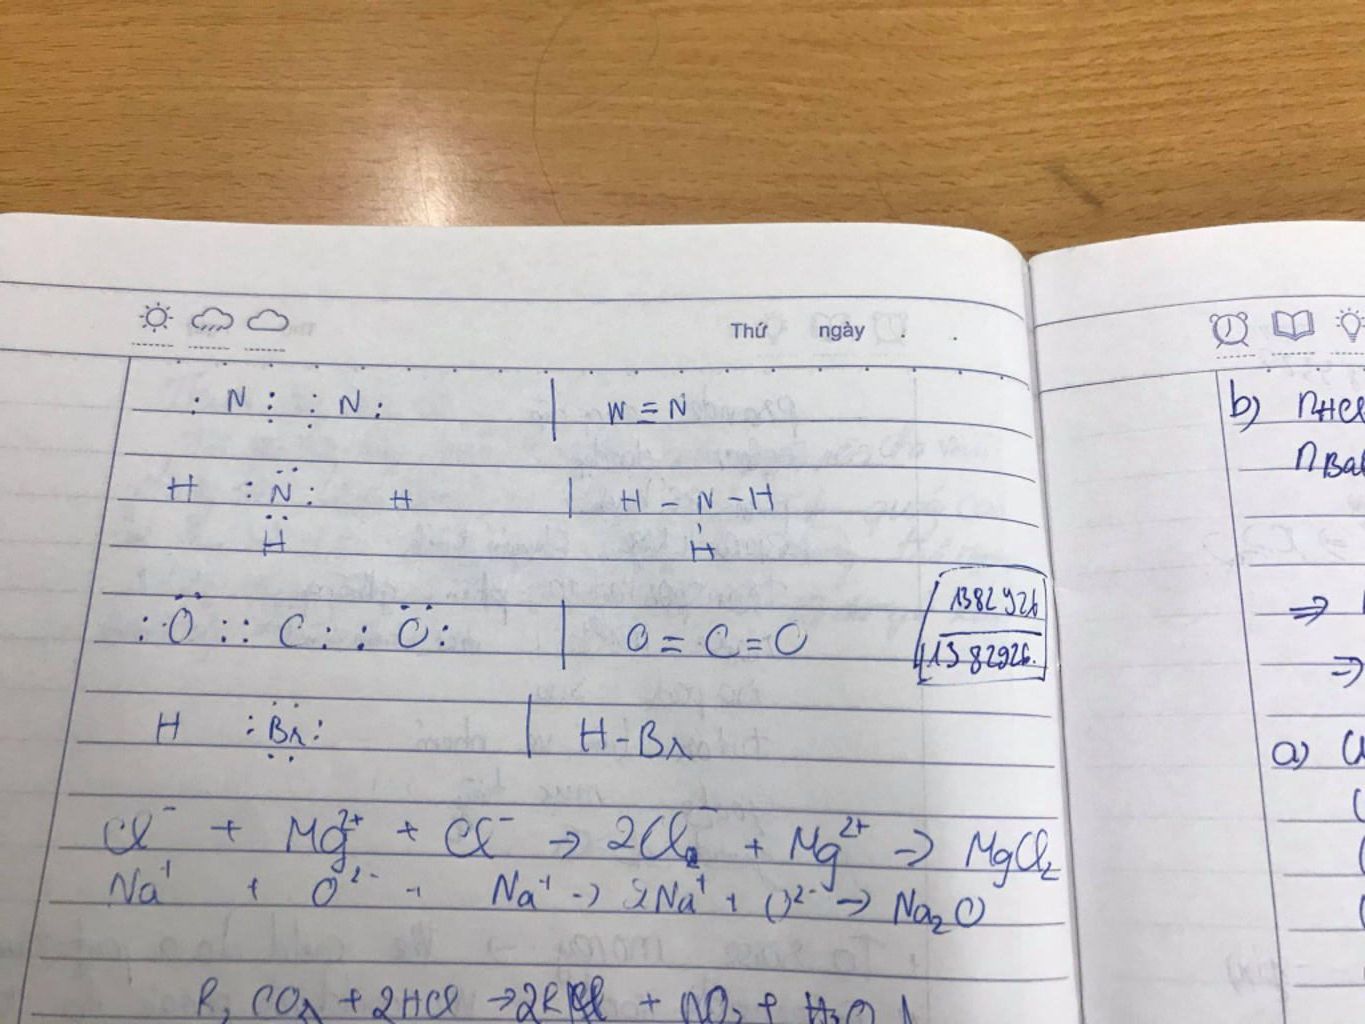 Thứ ngày . .
: N : : : : N : | N ≡ N
H : N̈ : H | H - N - H
H H
: Ö : : C : : Ö : | O = C = O
1382926
1382926.
H : Br : | H - Br
Cl⁻ + Mg²⁺ + Cl⁻ → 2Cl⁻ + Mg²⁺ → MgCl₂
Na⁺ + O²⁻ + Na⁺ → 2Na⁺ + O²⁻ → Na₂O
R₂CO₃ + 2HCl → 2RCl + CO₂ + H₂O
b) nHCl
nBa
⇒
⇒
a)